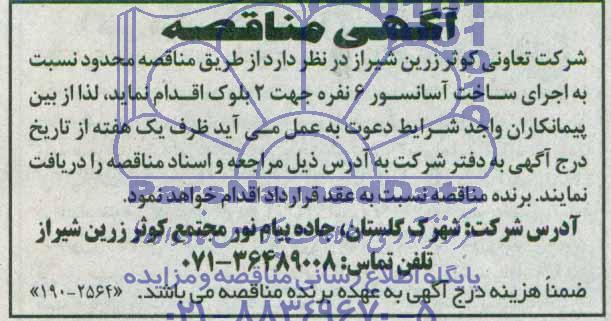 آگهی مناقصه
شرکت تعاونی کوثر زرین شیراز در نظر دارد از طریق مناقصه محدود نسبت
به اجرای ساخت آسانسور ۶ نفره جهت ۲ بلوک اقدام نماید، لذا از بین
پیمانکاران واجد شرایط دعوت به عمل می آید ظرف یک هفته از تاریخ
درج آگهی به دفتر شرکت به آدرس ذیل مراجعه و اسناد مناقصه را دریافت
نمایند. برنده مناقصه نسبت به عقد قرارداد اقدام خواهد نمود.
آدرس شرکت: شهرک گلستان، جاده پیام نور مجتمع کوثر زرین شیراز
تلفن تماس: ۳۶۴۸۹۰۰۸-۰۷۱
پایگاه اطلاع رسانی مناقصه و مزایده
ضمناً هزینه درج آگهی به عهده برنده مناقصه می باشد. «۲۵۶۴-۱۹۰»
۰۲۱-۸۸۳۴۹۶۷۰-۵